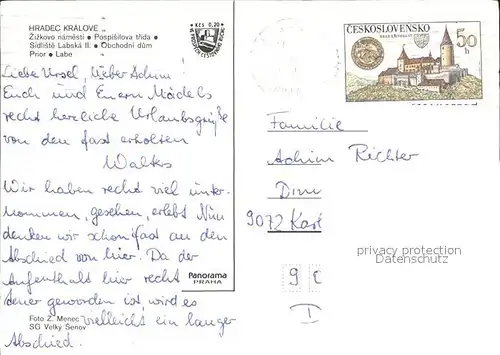 HRADEC KRÁLOVÉ
Žižkovo náměstí • Pospíšilova třída •
Sídliště Labská II. • Obchodní dům
Prior • Labe
KčS 0,20
Liebe Ursel, lieber Achim!
Euch und Euern Mädels
recht herzliche Urlaubsgrüße
von den fast erholten
Walters
Wir haben recht viel unter-
nommen, gesehen, erlebt. Nun
denken wir schon fast an den
Abschied von hier. Da der
Aufenthalt hier recht
teuer geworden ist, wird es
vielleicht ein langer
Abschied.
Panorama
PRAHA
Foto Z. Menec
SG Velký Šenov
ČESKOSLOVENSKO
50
h
Familie
Achim Richter
9072
privacy protection
Datenschutz
9